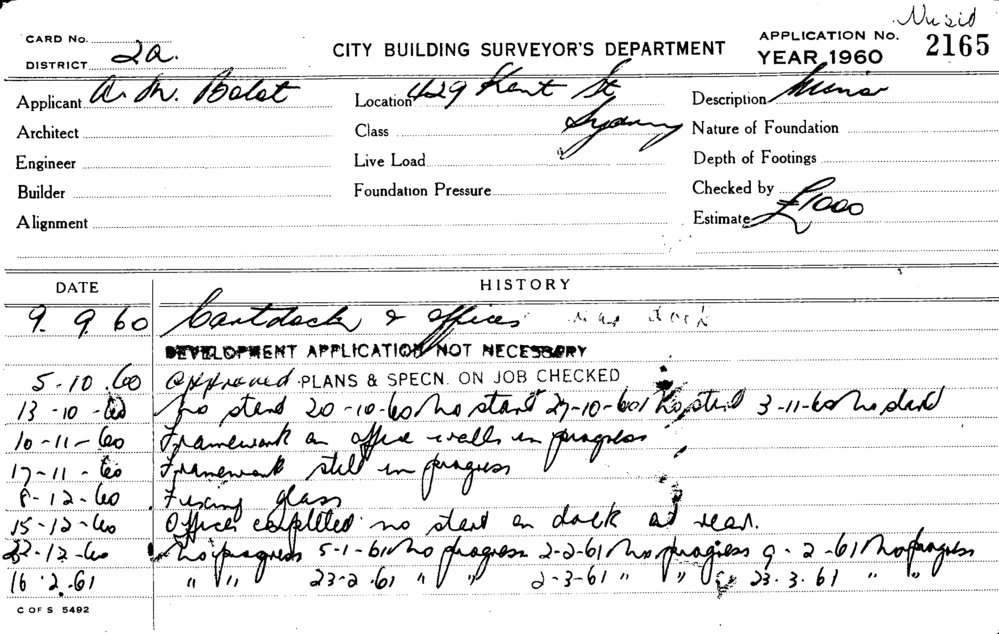 CARD No.
DISTRICT 2a.
CITY BUILDING SURVEYOR'S DEPARTMENT
APPLICATION No. 2165
YEAR 1960
Applicant A. M. Balot
Location 429 Kent St
Sydney
Description Minor
Architect
Class
Nature of Foundation
Engineer
Live Load
Depth of Footings
Builder
Foundation Pressure
Checked by
Alignment
Estimate £1000
DATE HISTORY
9. 9. 60 Cartdock & offices dock
DEVELOPMENT APPLICATION NOT NECESSARY
5-10.60 Approved. PLANS & SPECN. ON JOB CHECKED
13-10-60 No start 20-10-60 No start 27-10-60 No start 3-11-60 No start
10-11-60 Framework on office walls in progress
17-11-60 Framework still in progress
8-12-60 Fixing glass
15-12-60 Offices no start on dock at rear.
22-12-60 No progress 5-1-61 No progress 2-2-61 No progress 9-2-61 No progress
16.2.61 " " 23-2.61 " " 2-3-61 " " 23.3.61 " "
C OF S 5492